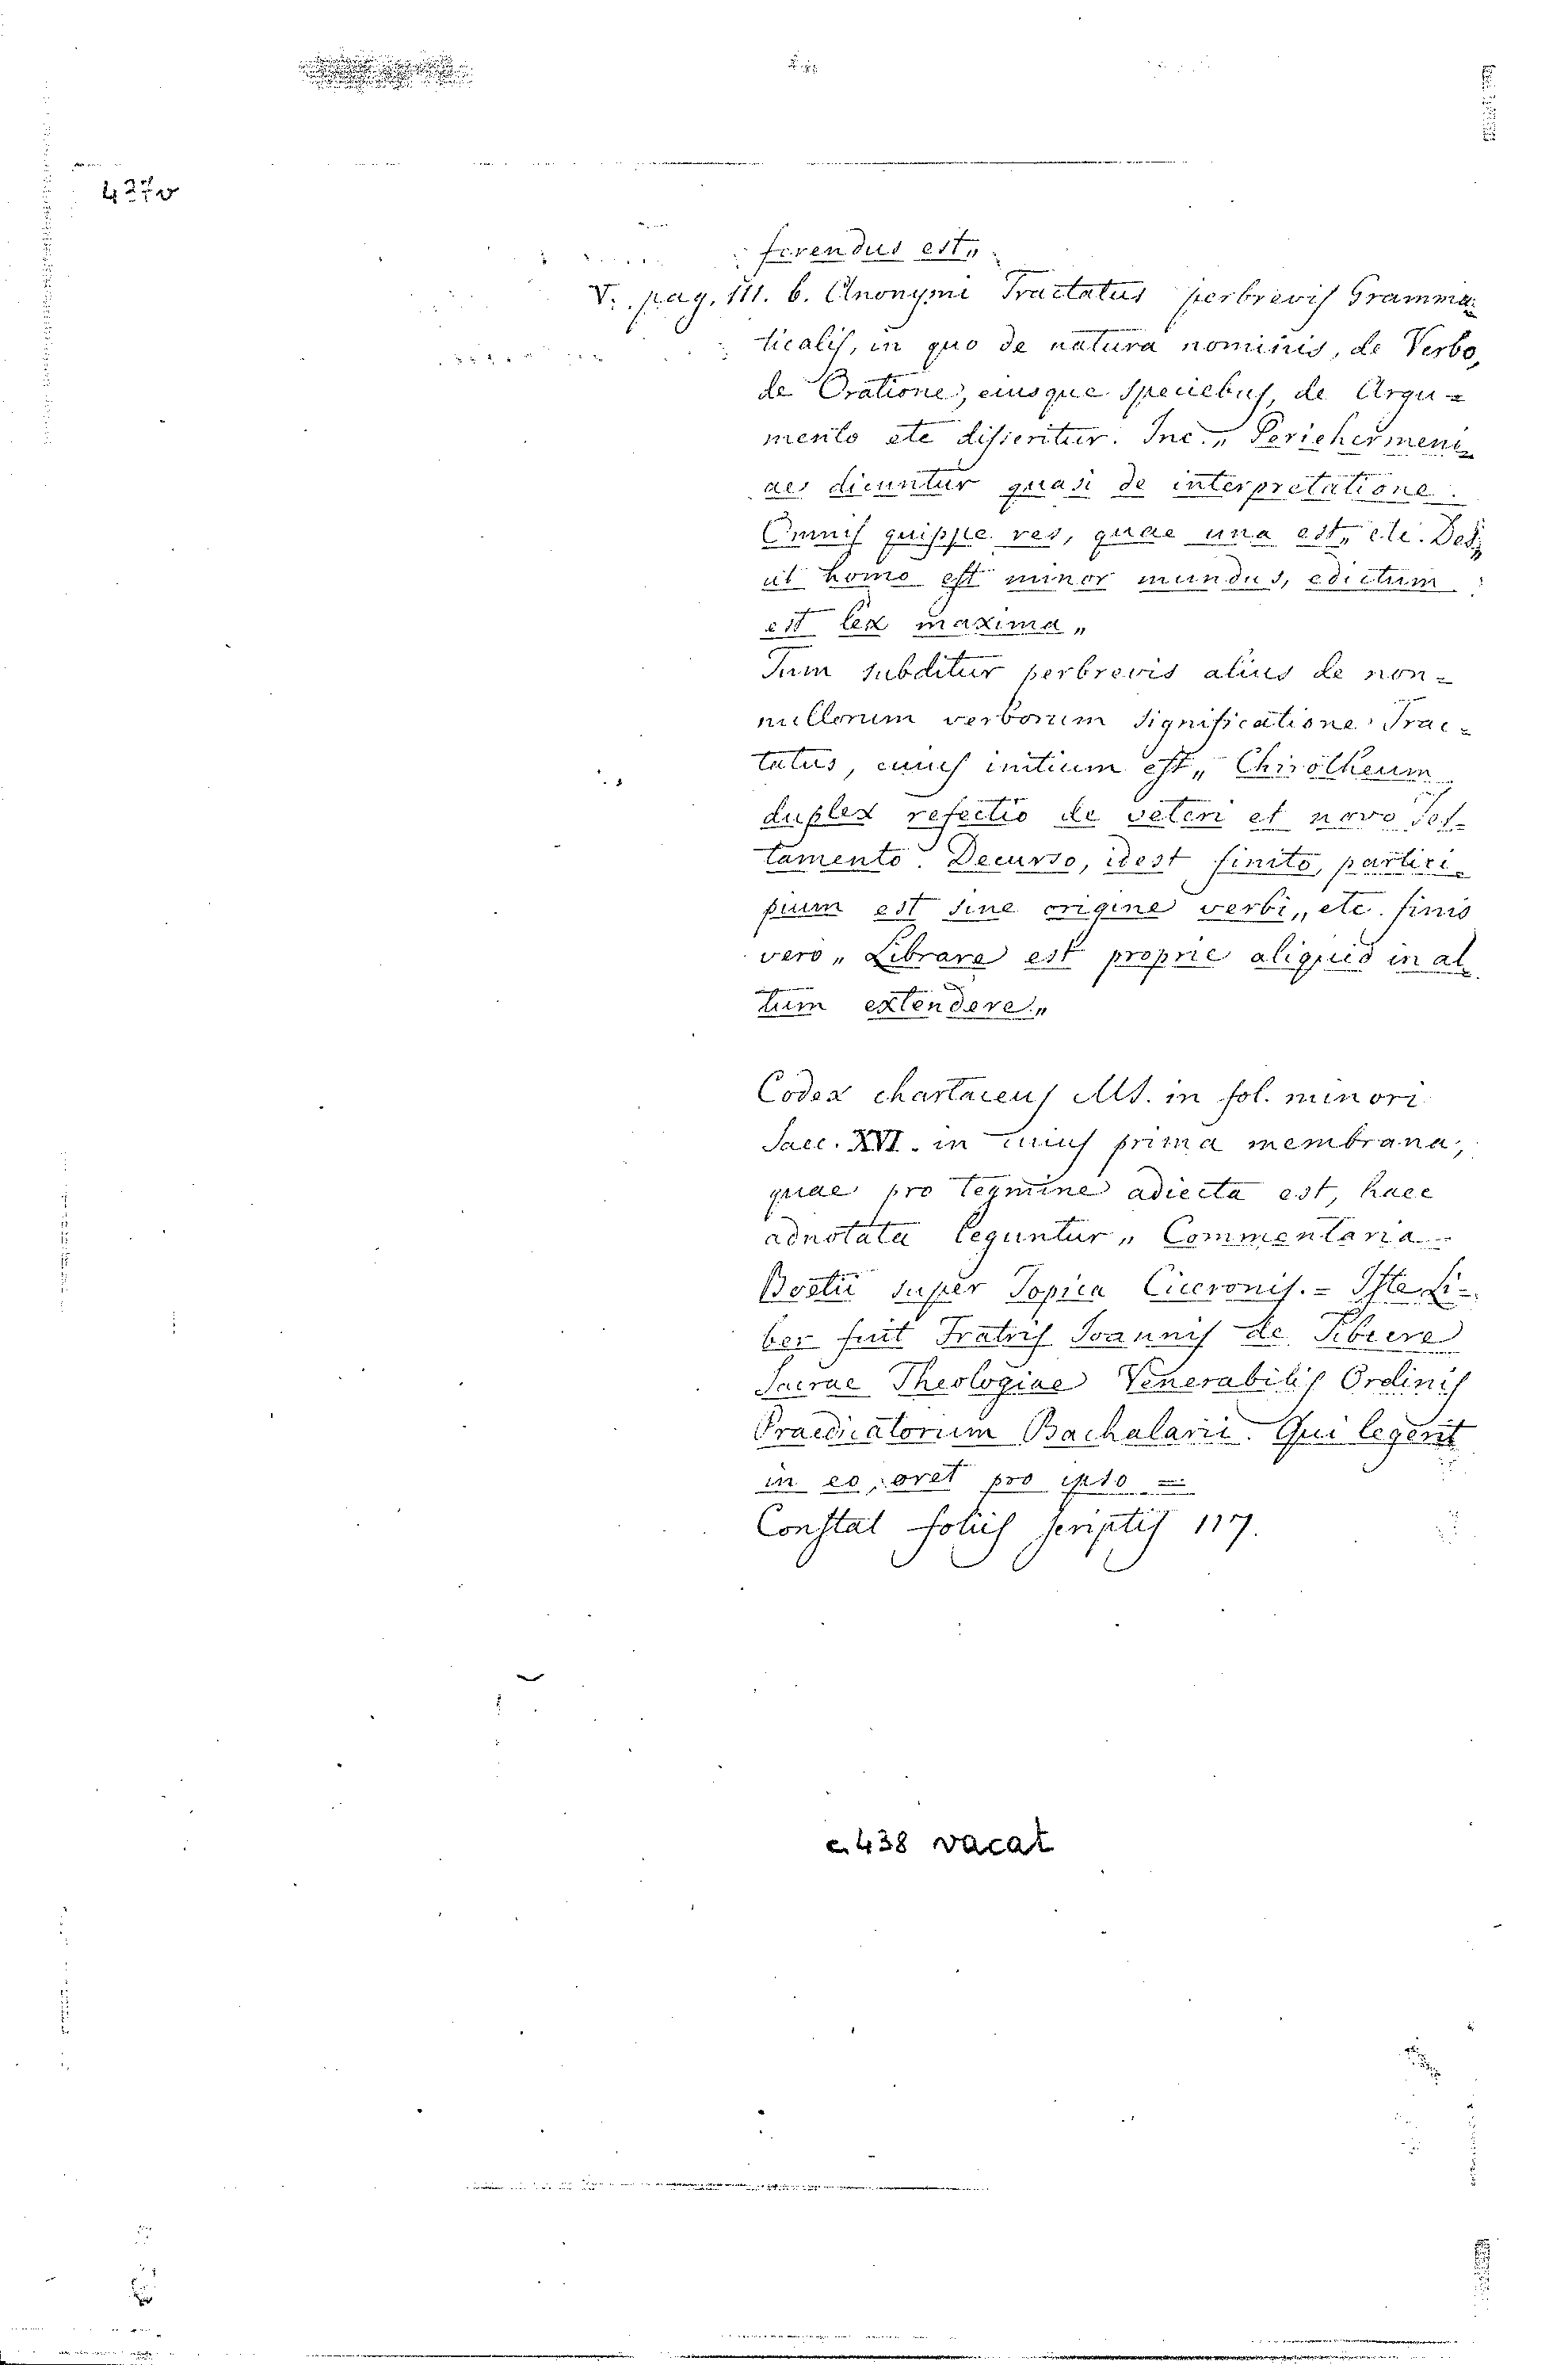 437v
ferendus est„
V. pag. 111. b. Anonymi Tractatus perbrevis Gramma-
ticalis, in quo de natura nominis, de Verbo,
de Oratione, eiusque speciebus, de Argu-
mento etc disseritur. Inc. „ Perichermeni-
ae dicuntur quasi de interpretatione.
Omnis quippe res, quae una est„ etc. Des.
ut homo est minor mundus, edictum
est lex maxima„
Tum subditur perbrevis alius de non-
nullorum verborum significatione Trac-
tatus, cuius initium est „ Chirotheum
duplex refectio de veteri et novo Tes-
tamento. Decurso, idest finito, partici-
pium est sine origine verbi„ etc. finis
vero „ Librare est proprie aliquid in al-
tum extendere„
Codex chartaceus Ms. in fol. minori
Saec. XVI. in cuius prima membrana,
quae pro tegmine adiecta est, haec
adnotata leguntur „ Commentaria
Boetii super Topica Ciceronis. - Iste Li-
ber fuit Fratris Ioannis de
Sacrae Theologiae Venerabilis Ordinis
Praedicatorum Bachalarii. Qui legerit
in eo, oret pro ipso =
Constat foliis scriptis 117.
c. 438 vacat